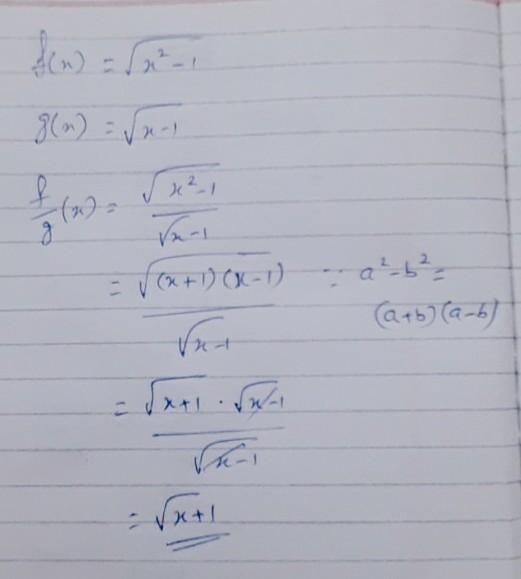 f(x) = √(x² - 1)
g(x) = √(x - 1)
f/g (x) = √(x² - 1) / √(x - 1)
= √((x+1)(x-1)) / √(x - 1) ∵ a² - b² =
(a+b)(a-b)
= √(x+1) · √(x-1) / √(x-1)
= √(x+1)